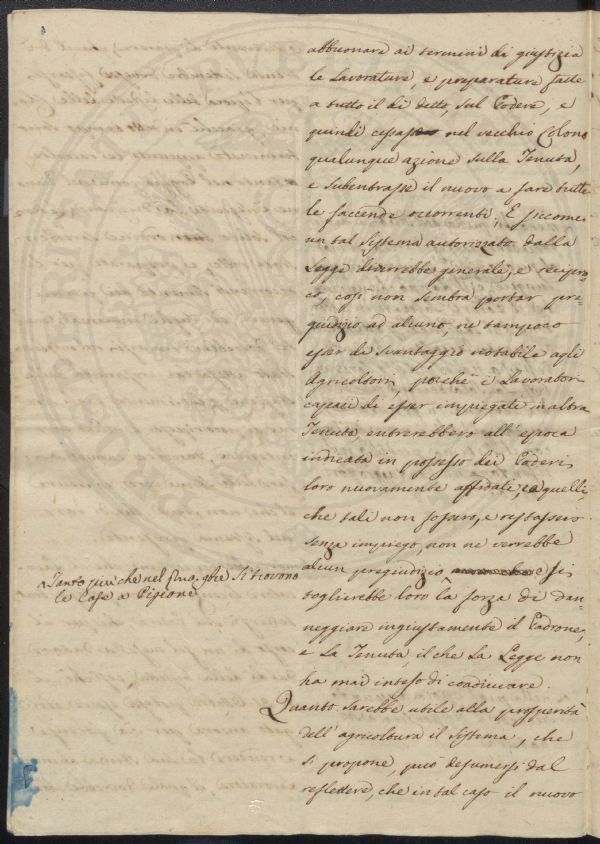 abbuonare ai termini di giustizia
le Lavorature, e preparature fatte
a tutto il dì detto, sul Podere, e
quindi cessasse nel vecchio Colono
qualunque azione sulla Tenuta,
e subentrasse il nuovo a fare tutte
le faccende occorrenti; E siccome
un tal sistema autorizzato dalla
Legge diverrebbe generale, e recipro=
co, così non sembra portar pre=
giudizio ad alcuno, ne tampoco
esser di svantaggio notabile agli
Agricoltori, poichè i Lavoratori
capaci di esser impiegati in altra
Tenuta, entrerebbero all' epoca
indicata in possesso dei Poderi
loro nuovamente affidati, e a quelli,
che tali non fossero, e restassero
senza impiego, non ne verrebbe
alcun pregiudizio si
toglierebbe loro la forza di dan=
neggiare ingiustamente il Padrone,
e la Tenuta, il che la Legge non
ha mai inteso di coadiuvare.
Tanto più che nel si trovano
le Case a Pigione
Quanto sarebbe utile alla prosperità
dell' agricoltura il sistema, che
si propone, può desumersi dal
reflettere, che in tal caso il nuovo